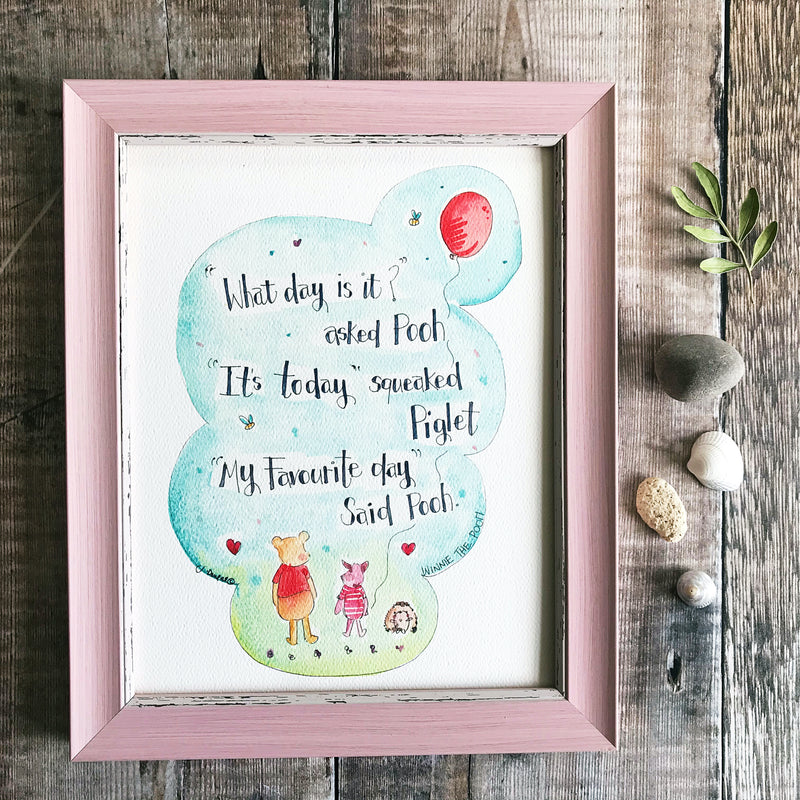 "What day is it?"
asked Pooh
"It's today" squeaked
Piglet
"My Favourite day"
Said Pooh.
WINNIE THE POOH